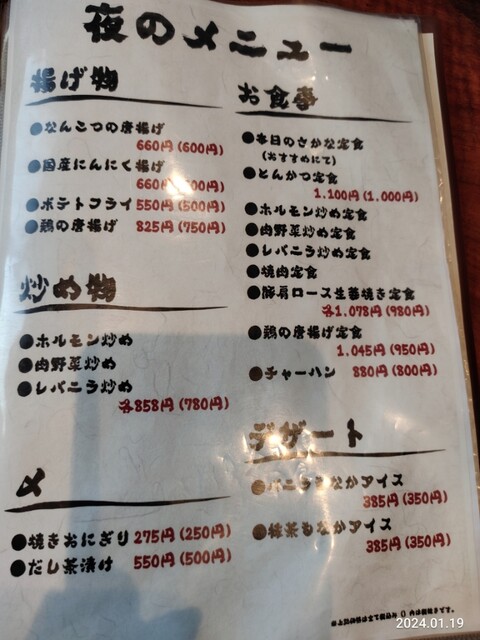 夜のメニュー
揚げ物
●なんこつの唐揚げ
660円(600円)
●国産にんにく揚げ
660
00円)
●ポテトフライ 550円(500円)
●鶏の唐揚げ 825円(750円)
炒め物
●ホルモン炒め
●肉野菜炒め
●レバニラ炒め
各858円(780円)
〆
●焼きおにぎり 275円(250円)
●だし茶漬け 550円(500円)
お食事
●本日のさかな定食
(おすすめにて)
●とんかつ定食
1.100円(1.000円)
●ホルモン炒め定食
●肉野菜炒め定食
●レバニラ炒め定食
●焼肉定食
●豚肩ロース生姜焼き定食
各1.078円(980円)
●鶏の唐揚げ定食
1.045円(950円)
●チャーハン 880円(800円)
デザート
●バニラもなかアイス
385円(350円)
●抹茶もなかアイス
385円(350円)
2024.01.19